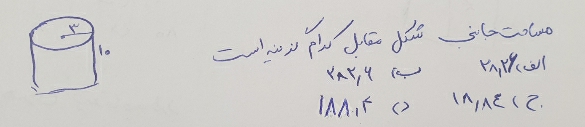 ۳
۱۰
مساحت جانبی شکل مقابل کدام گزینه است
الف) ۲۸٫۲۶ ب) ۲۸۲٫۶
ج) ۱۸٫۸۴ د) ۱۸۸٫۴